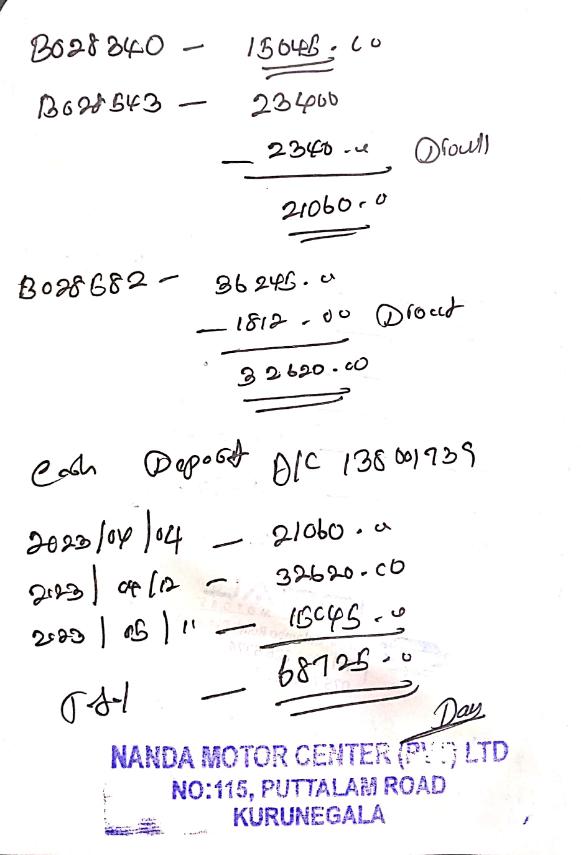 B028340 - 15045.00
B028543 - 23400
- 2340.00
21060.0
B028682 - 36245.00
- 1812.00
32620.00
Cash Deposit A/C 138001739
2023/04/04 - 21060.00
2023/04/12 - 32620.00
2023/05/11 - 15045.00
68725.0
NANDA MOTOR CENTER (PVT) LTD
NO:115, PUTTALAM ROAD
KURUNEGALA